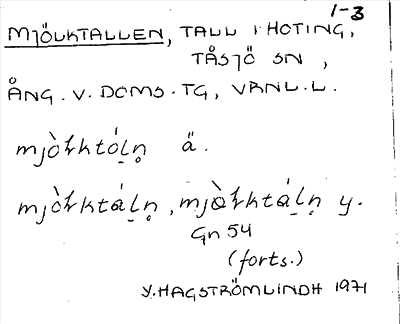 1-3
MJÖLKTALLEN, TALL I HOTING,
TÅSJÖ SN,
ÅNG. V. DOMS. TG, VRNL.L.
mjòɫktóḷṇ ä.
mjòɫktáḷṇ, mjàɫktáḷṇ y.
Gn 54
(forts.)
Y. HAGSTRÖMLINDH 1971